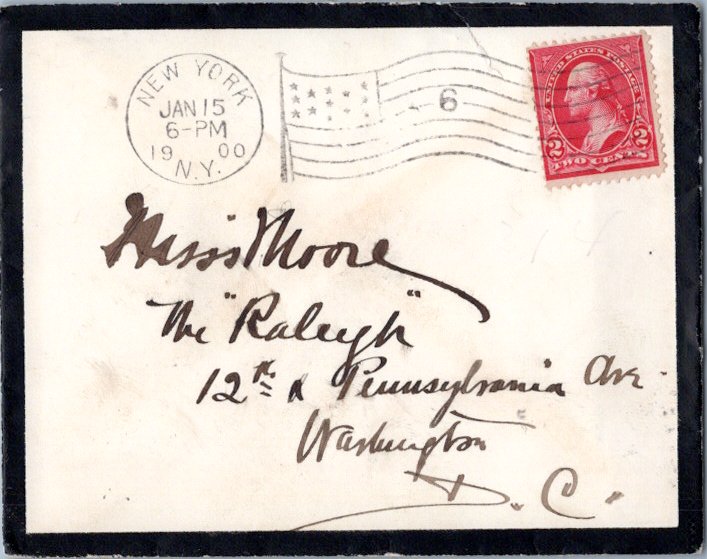 NEW YORK
JAN 15
6-PM
19 00
N.Y.
6
UNITED STATES POSTAGE
2 2
TWO CENTS
Miss Moore
The "Raleigh"
12th & Pennsylvania Ave.
Washington
D. C.